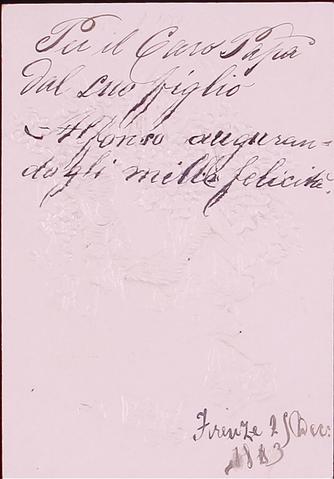 Per il Caro Papà
dal suo figlio
Alfonso auguran=
dogli mille felicità.
Firenze 25 Dec:
1883